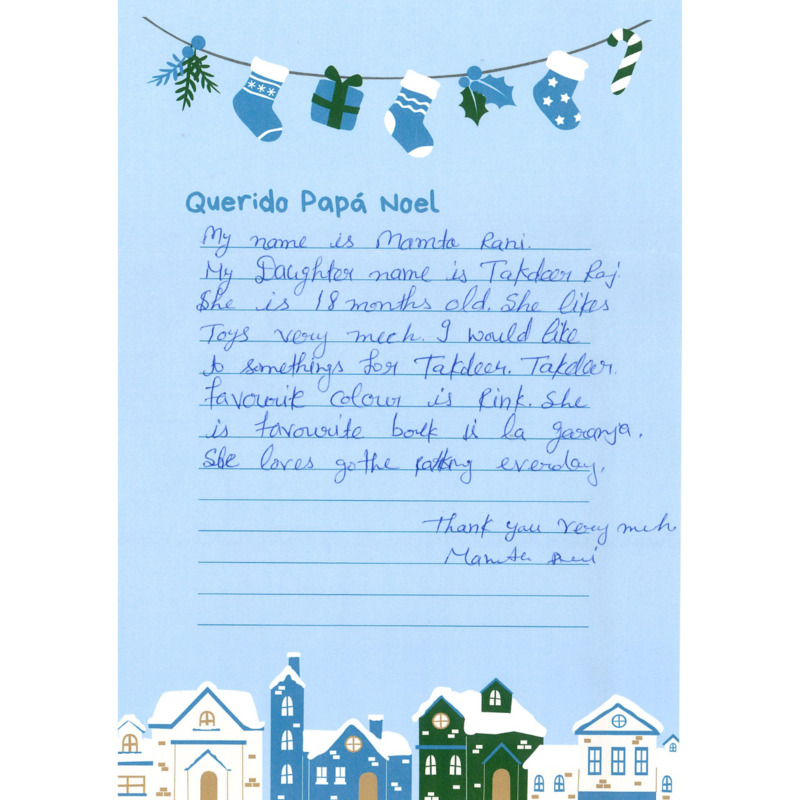 Querido Papá Noel
My name is Mamta Rani.
My Daughter name is Takdeer Raj
She is 18 months old. She likes
Toys very mech. I would like
to somethings for Takdeer. Takdeer
favourite colour is Pink. She
is favourite book is la garanja.
She loves go the everday.
Thank you very much
Mamta Rani